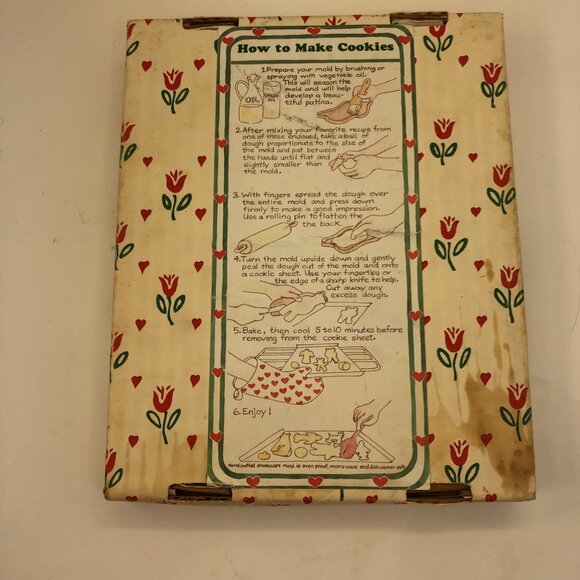 How to Make Cookies
1. Prepare your mold by brushing or
spraying with vegetable oil.
This will season the
mold and will help
develop a beau-
tiful patina.
OIL
SPRAY
OIL
2. After mixing your favorite recipe from
one of those enclosed, take a ball of
dough proportionate to the size of
the mold and pat between
the hands until flat and
slightly smaller than
the mold.
3. With fingers spread the dough over
the entire mold and press down
firmly to make a good impression.
Use a rolling pin to flatten the
the back.
4. Turn the mold upside down and gently
peal the dough out of the mold and onto
a cookie sheet. Use your fingertips or
the edge of a sharp knife to help.
Cut away any
excess dough.
5. Bake, then cool 5 to 10 minutes before
removing from the cookie sheet.
6. Enjoy!
Handcrafted stoneware mold is oven proof, microwave and dishwasher safe.